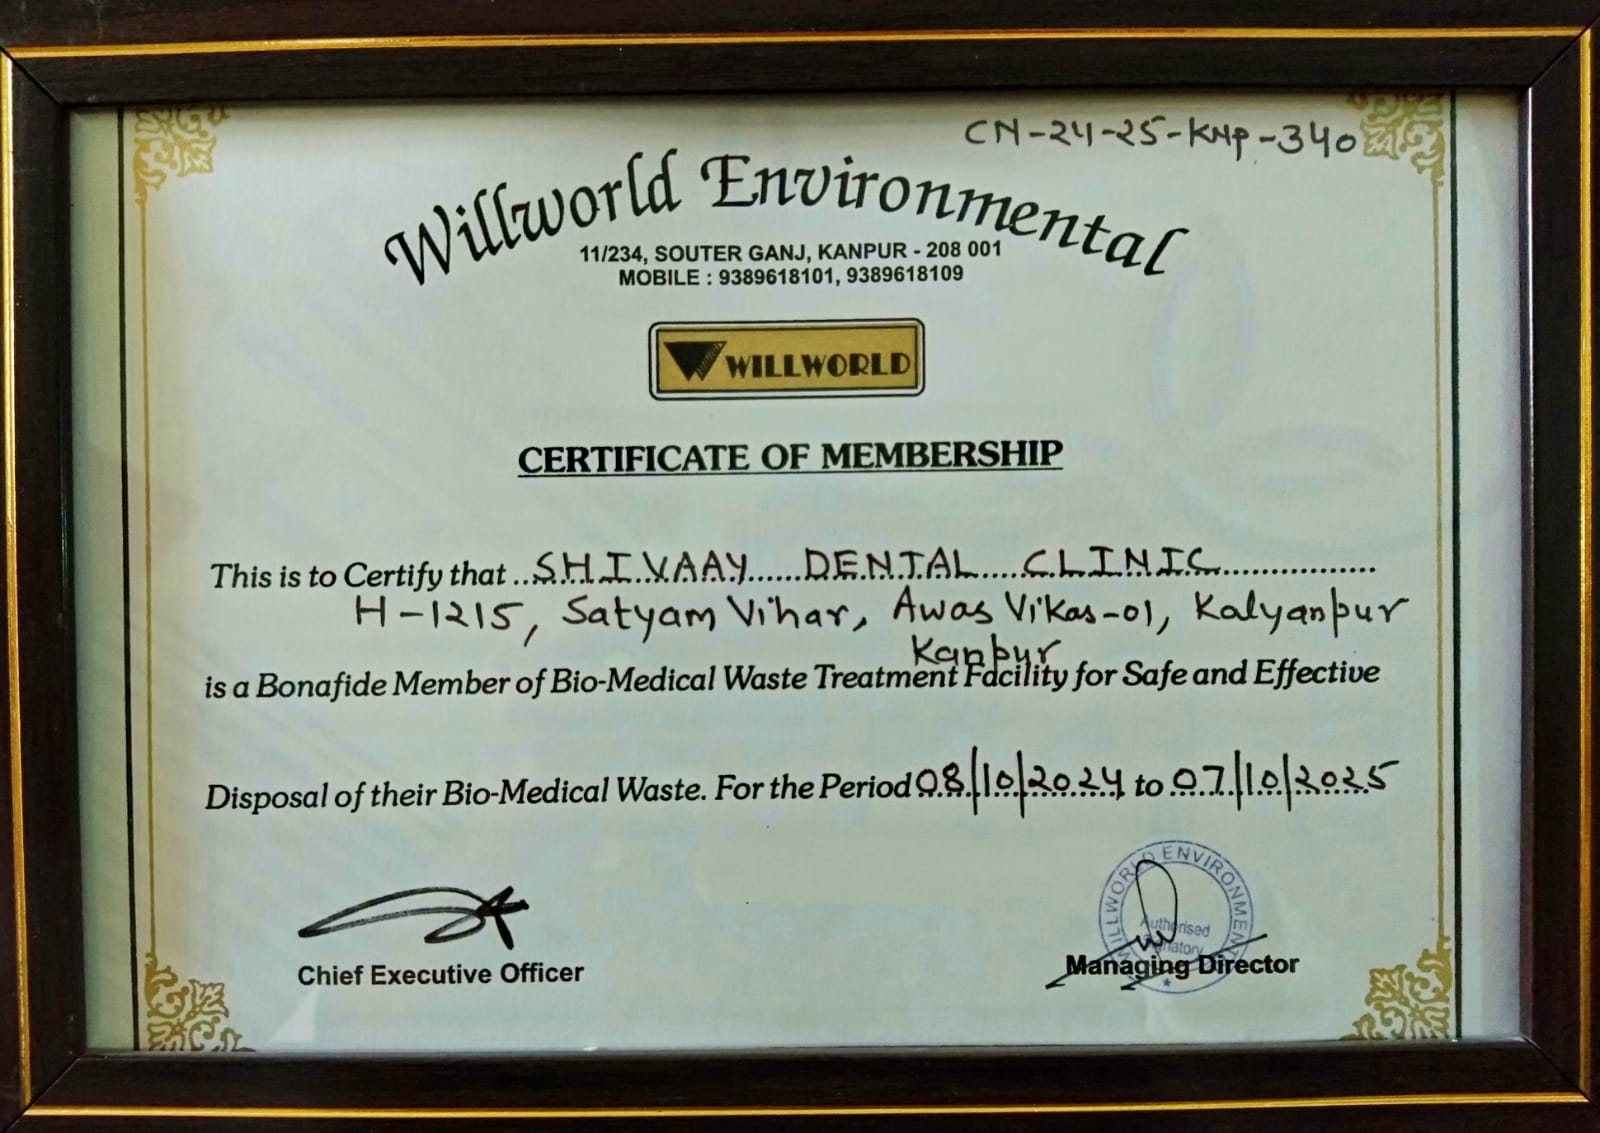 CN-24-25-KNP-340
Willworld Environmental
11/234, SOUTER GANJ, KANPUR - 208 001
MOBILE : 9389618101, 9389618109
WILLWORLD
CERTIFICATE OF MEMBERSHIP
This is to Certify that ..SHIVAAY......DENTAL....CLINIC................
H-1215, Satyam Vihar, Awas Vikas-01, Kalyanpur
Kanpur
is a Bonafide Member of Bio-Medical Waste Treatment Facility for Safe and Effective
Disposal of their Bio-Medical Waste. For the Period 08/10/2024 to 07/10/2025
WILLWORLD ENVIRONMENTAL
Authorised
Signatory
Chief Executive Officer
Managing Director